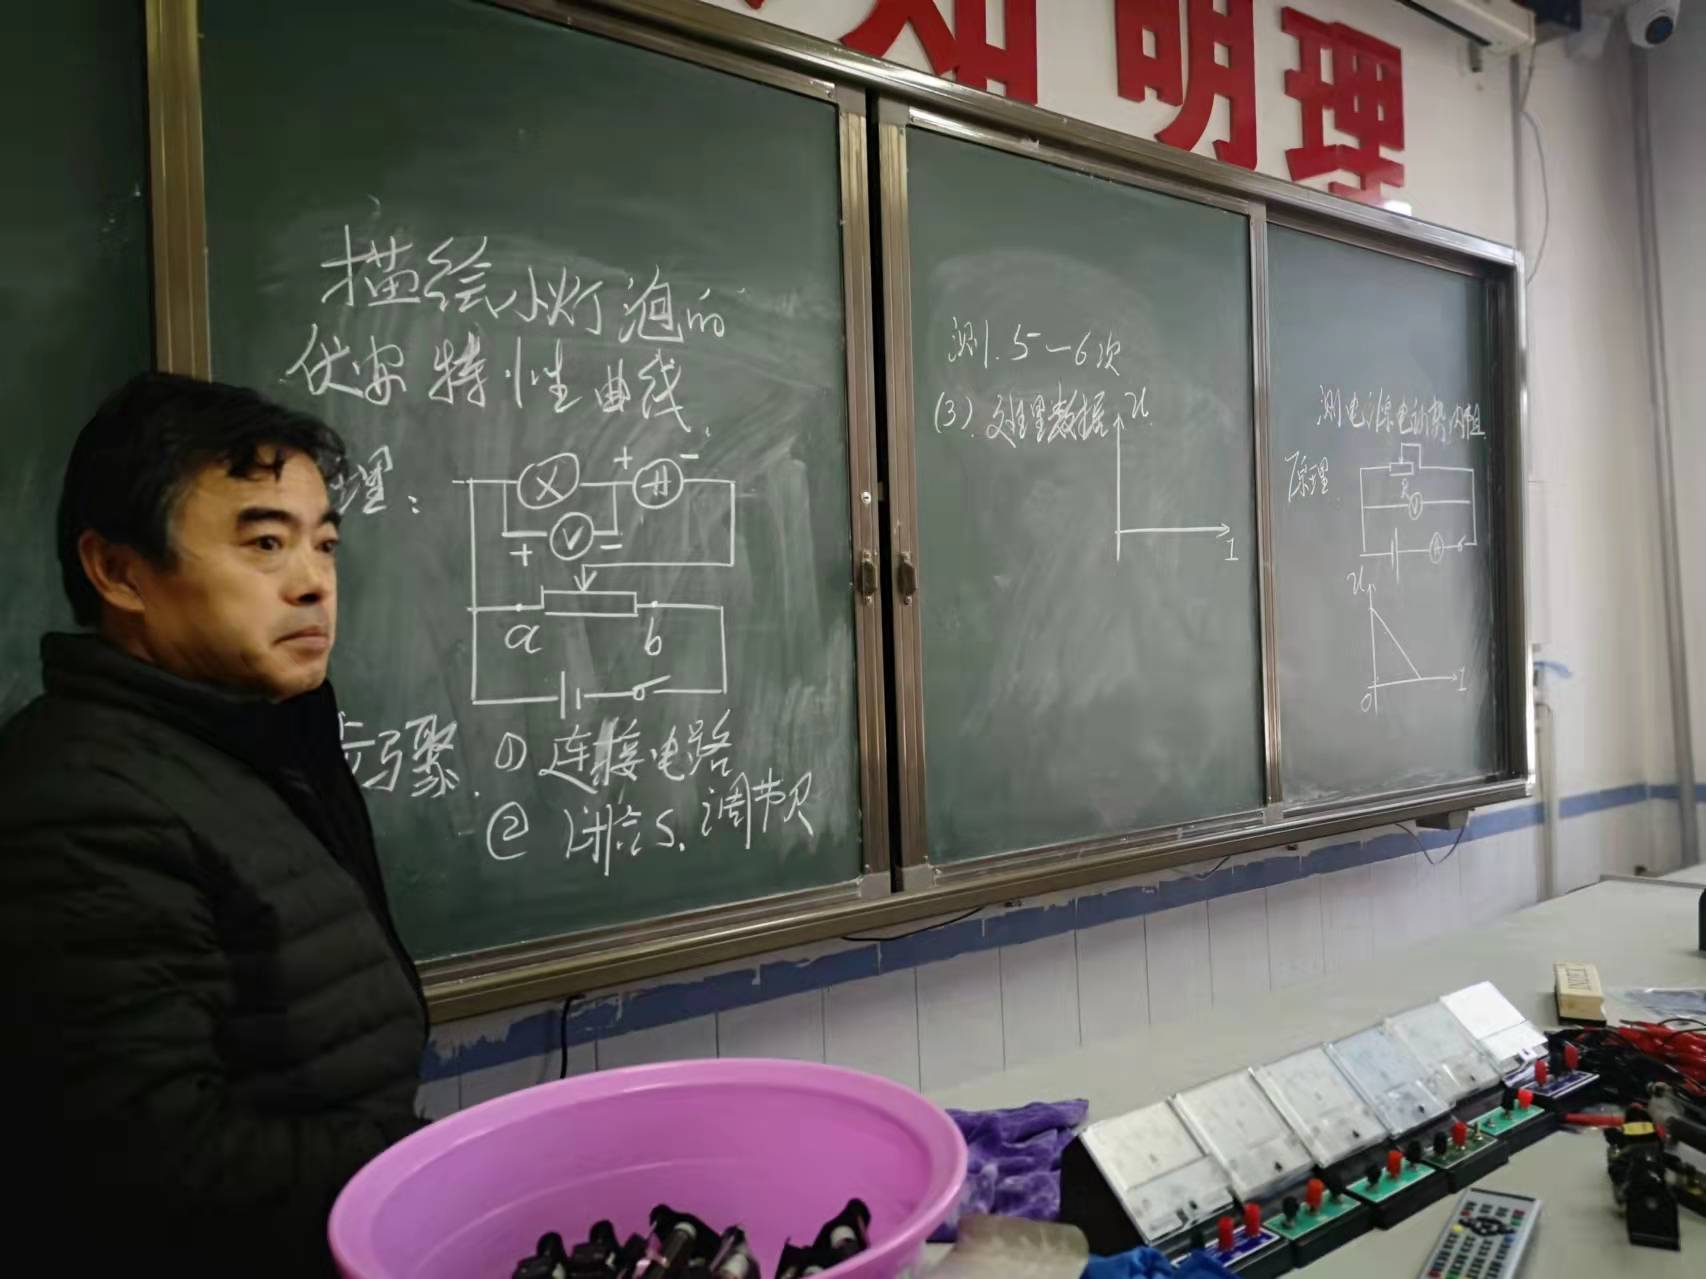 知明理
描绘小灯泡的
伏安特性曲线.
理:
+ -
A
V
+ -
a b
步骤. ① 连接电路
② 闭合S. 调节R
测1.5-6次
(3).处理数据
u
I
测电源电动势,内阻
原理
R
V
A
u
O I